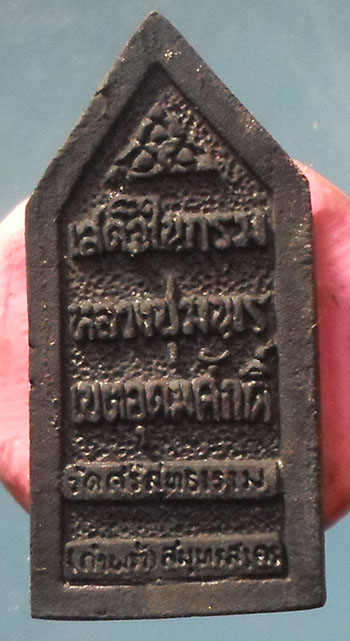 เสด็จในกรม
หลวงชุมพร
เขตอุดมศักดิ์
วัดศรีสุทธาราม
(กำพร้า) สมุทรสาคร